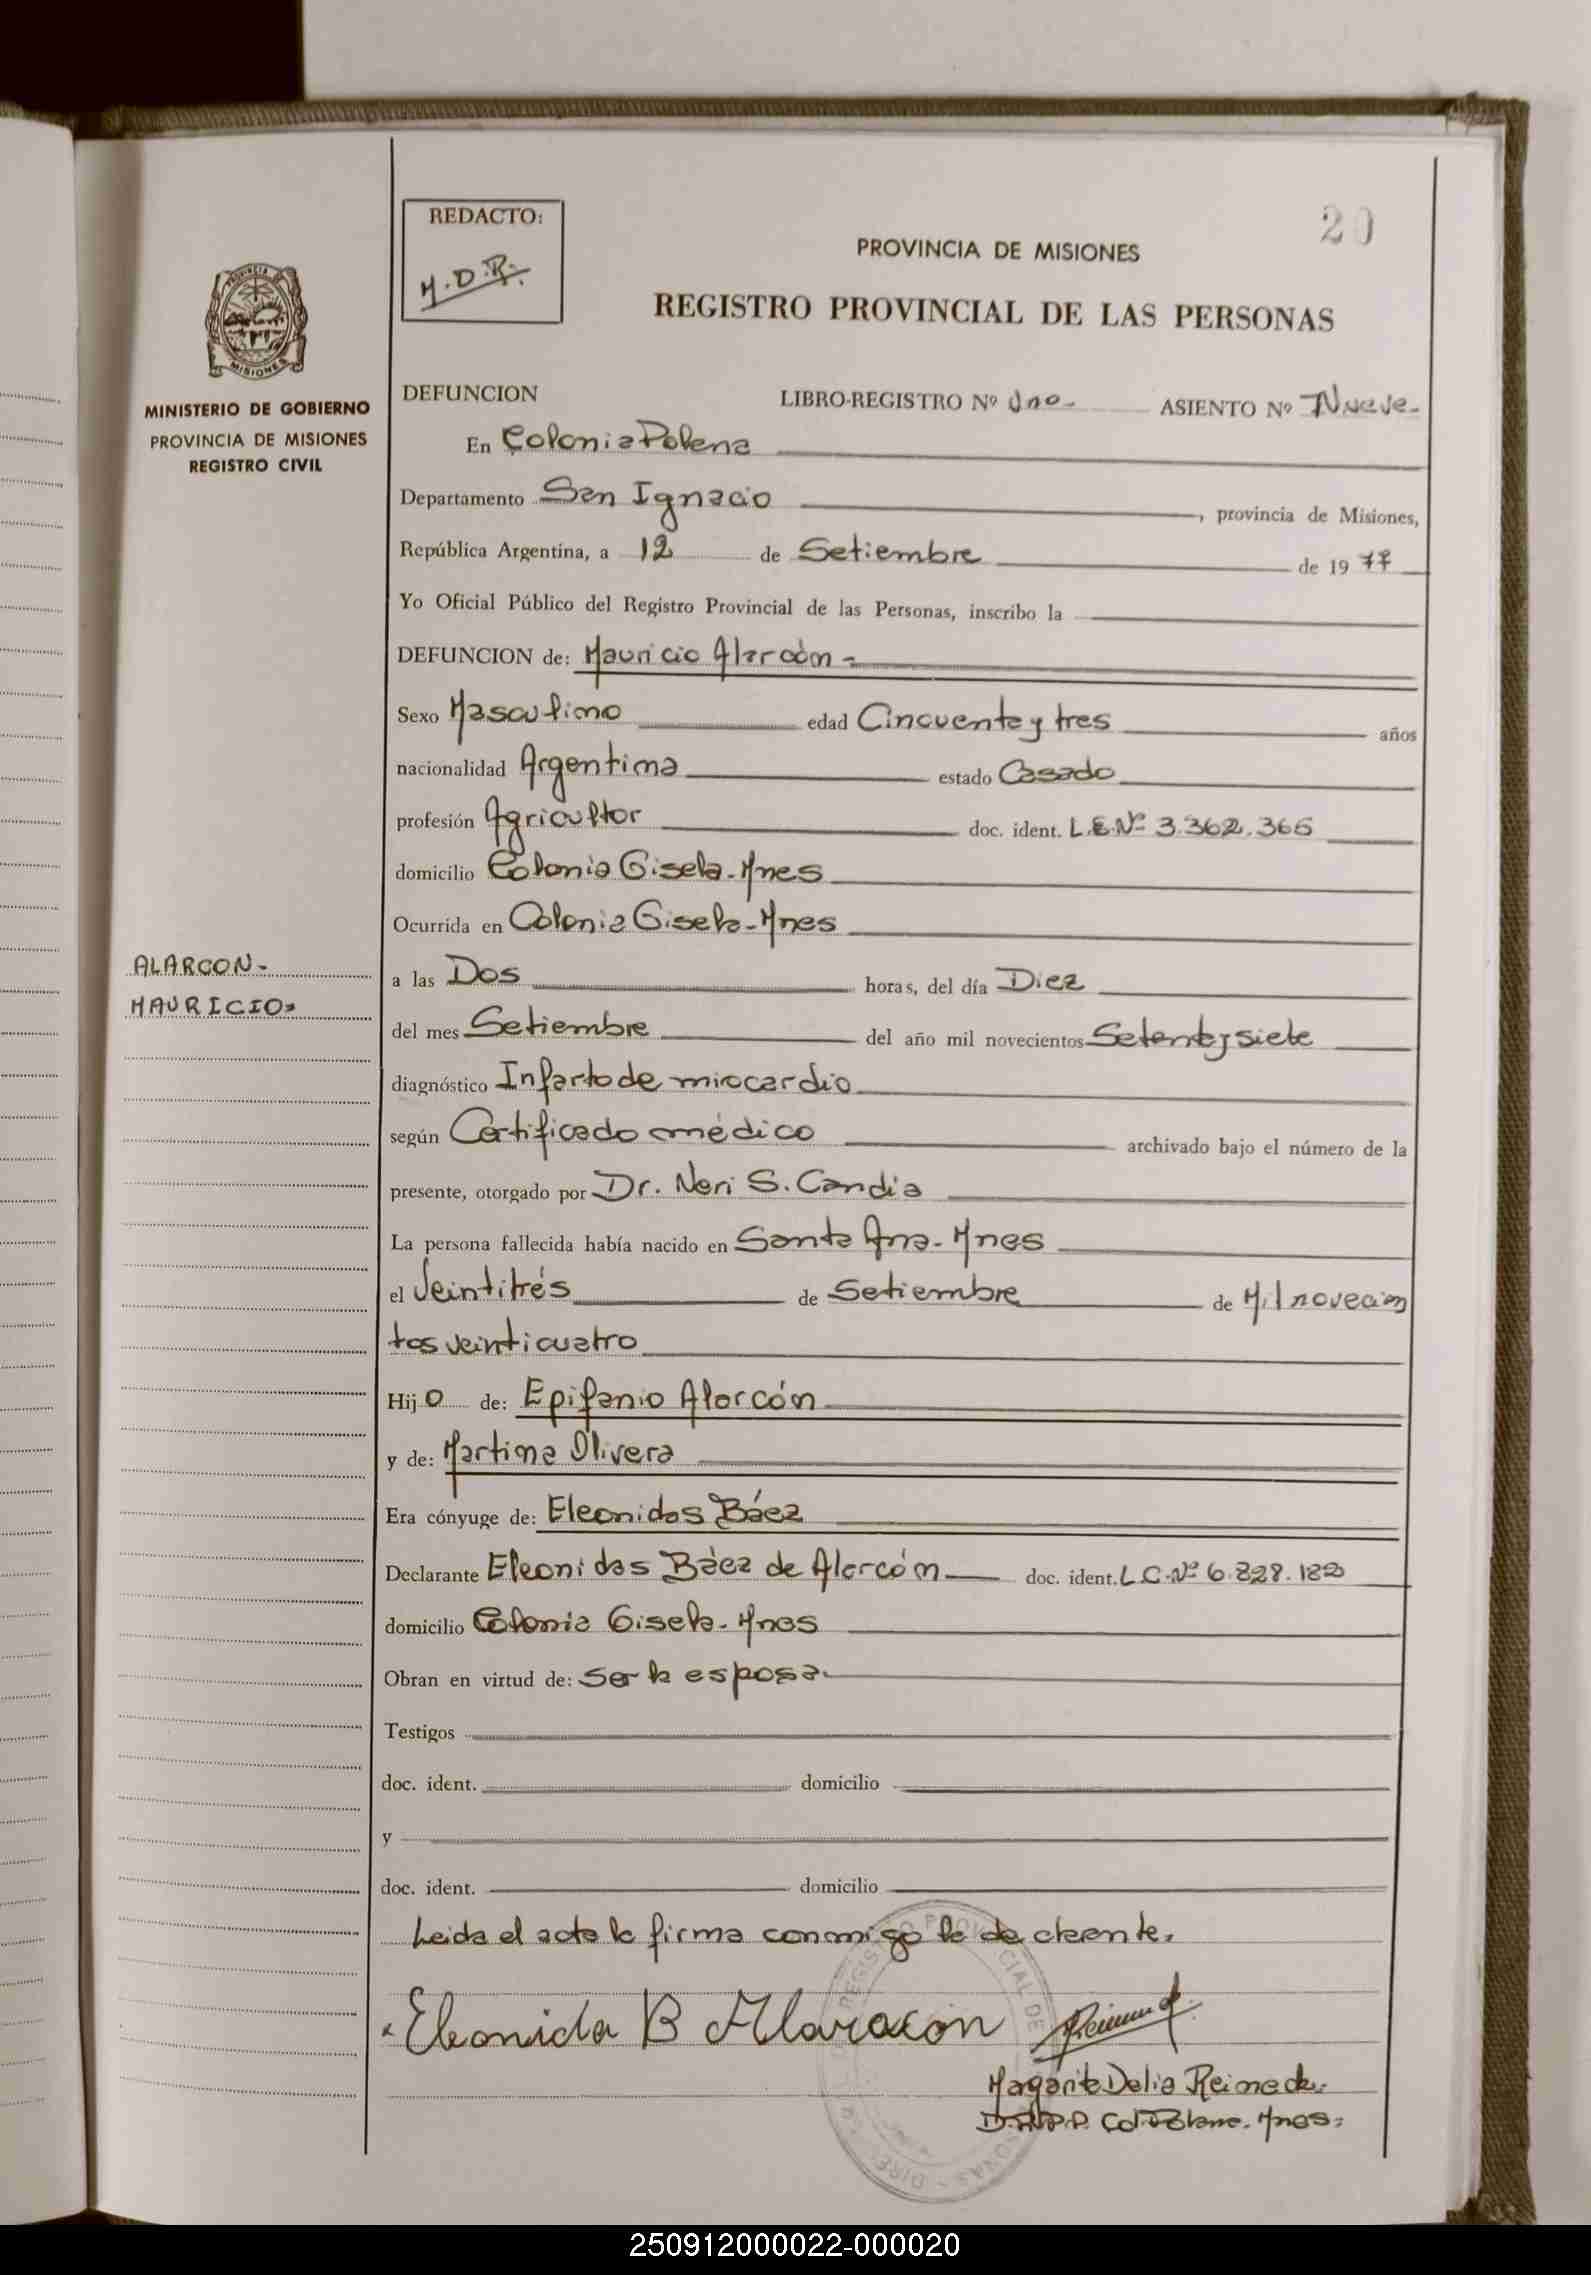 20
REDACTO:
M.D.R.
PROVINCIA DE MISIONES
REGISTRO PROVINCIAL DE LAS PERSONAS
PROVINCIA DE
MISIONES
MINISTERIO DE GOBIERNO
PROVINCIA DE MISIONES
REGISTRO CIVIL
DEFUNCION LIBRO-REGISTRO Nº Uno- ASIENTO Nº Nueve-
En Colonia Polana
Departamento San Ignacio, provincia de Misiones,
República Argentina, a 12 de Setiembre de 1977
Yo Oficial Público del Registro Provincial de las Personas, inscribo la
DEFUNCION de: Mauricio Alarcón-
Sexo Masculino edad Cincuenta y tres años
nacionalidad Argentina estado Casado
profesión Agricultor doc. ident. L.E.Nº 3.362.365
domicilio Colonia Gisela-Mnes
Ocurrida en Colonia Gisela-Mnes
ALARCON-
MAURICIO-
a las Dos horas, del día Diez
del mes Setiembre del año mil novecientos Setenta y siete
diagnóstico Infarto de miocardio
según Certificado médico archivado bajo el número de la
presente, otorgado por Dr. Neri S. Candia
La persona fallecida había nacido en Santa Ana-Mnes
el Veintitrés de Setiembre de Mil novecien
tos veinticuatro
Hijo de: Epifanio Alarcón
y de: Martina Olivera
Era cónyuge de: Eleonidas Báez
Declarante Eleonidas Báez de Alarcón doc. ident. L.C.Nº
domicilio Colonia Gisela-Mnes
Obran en virtud de: Ser la esposa-
Testigos
doc. ident. domicilio
y
doc. ident. domicilio
Leida el acta la firma conmigo la declarante.
Eleonida B Alaracon
Margarita Delia Reineck.
Col. Polana. Mnes.
250912000022-000020